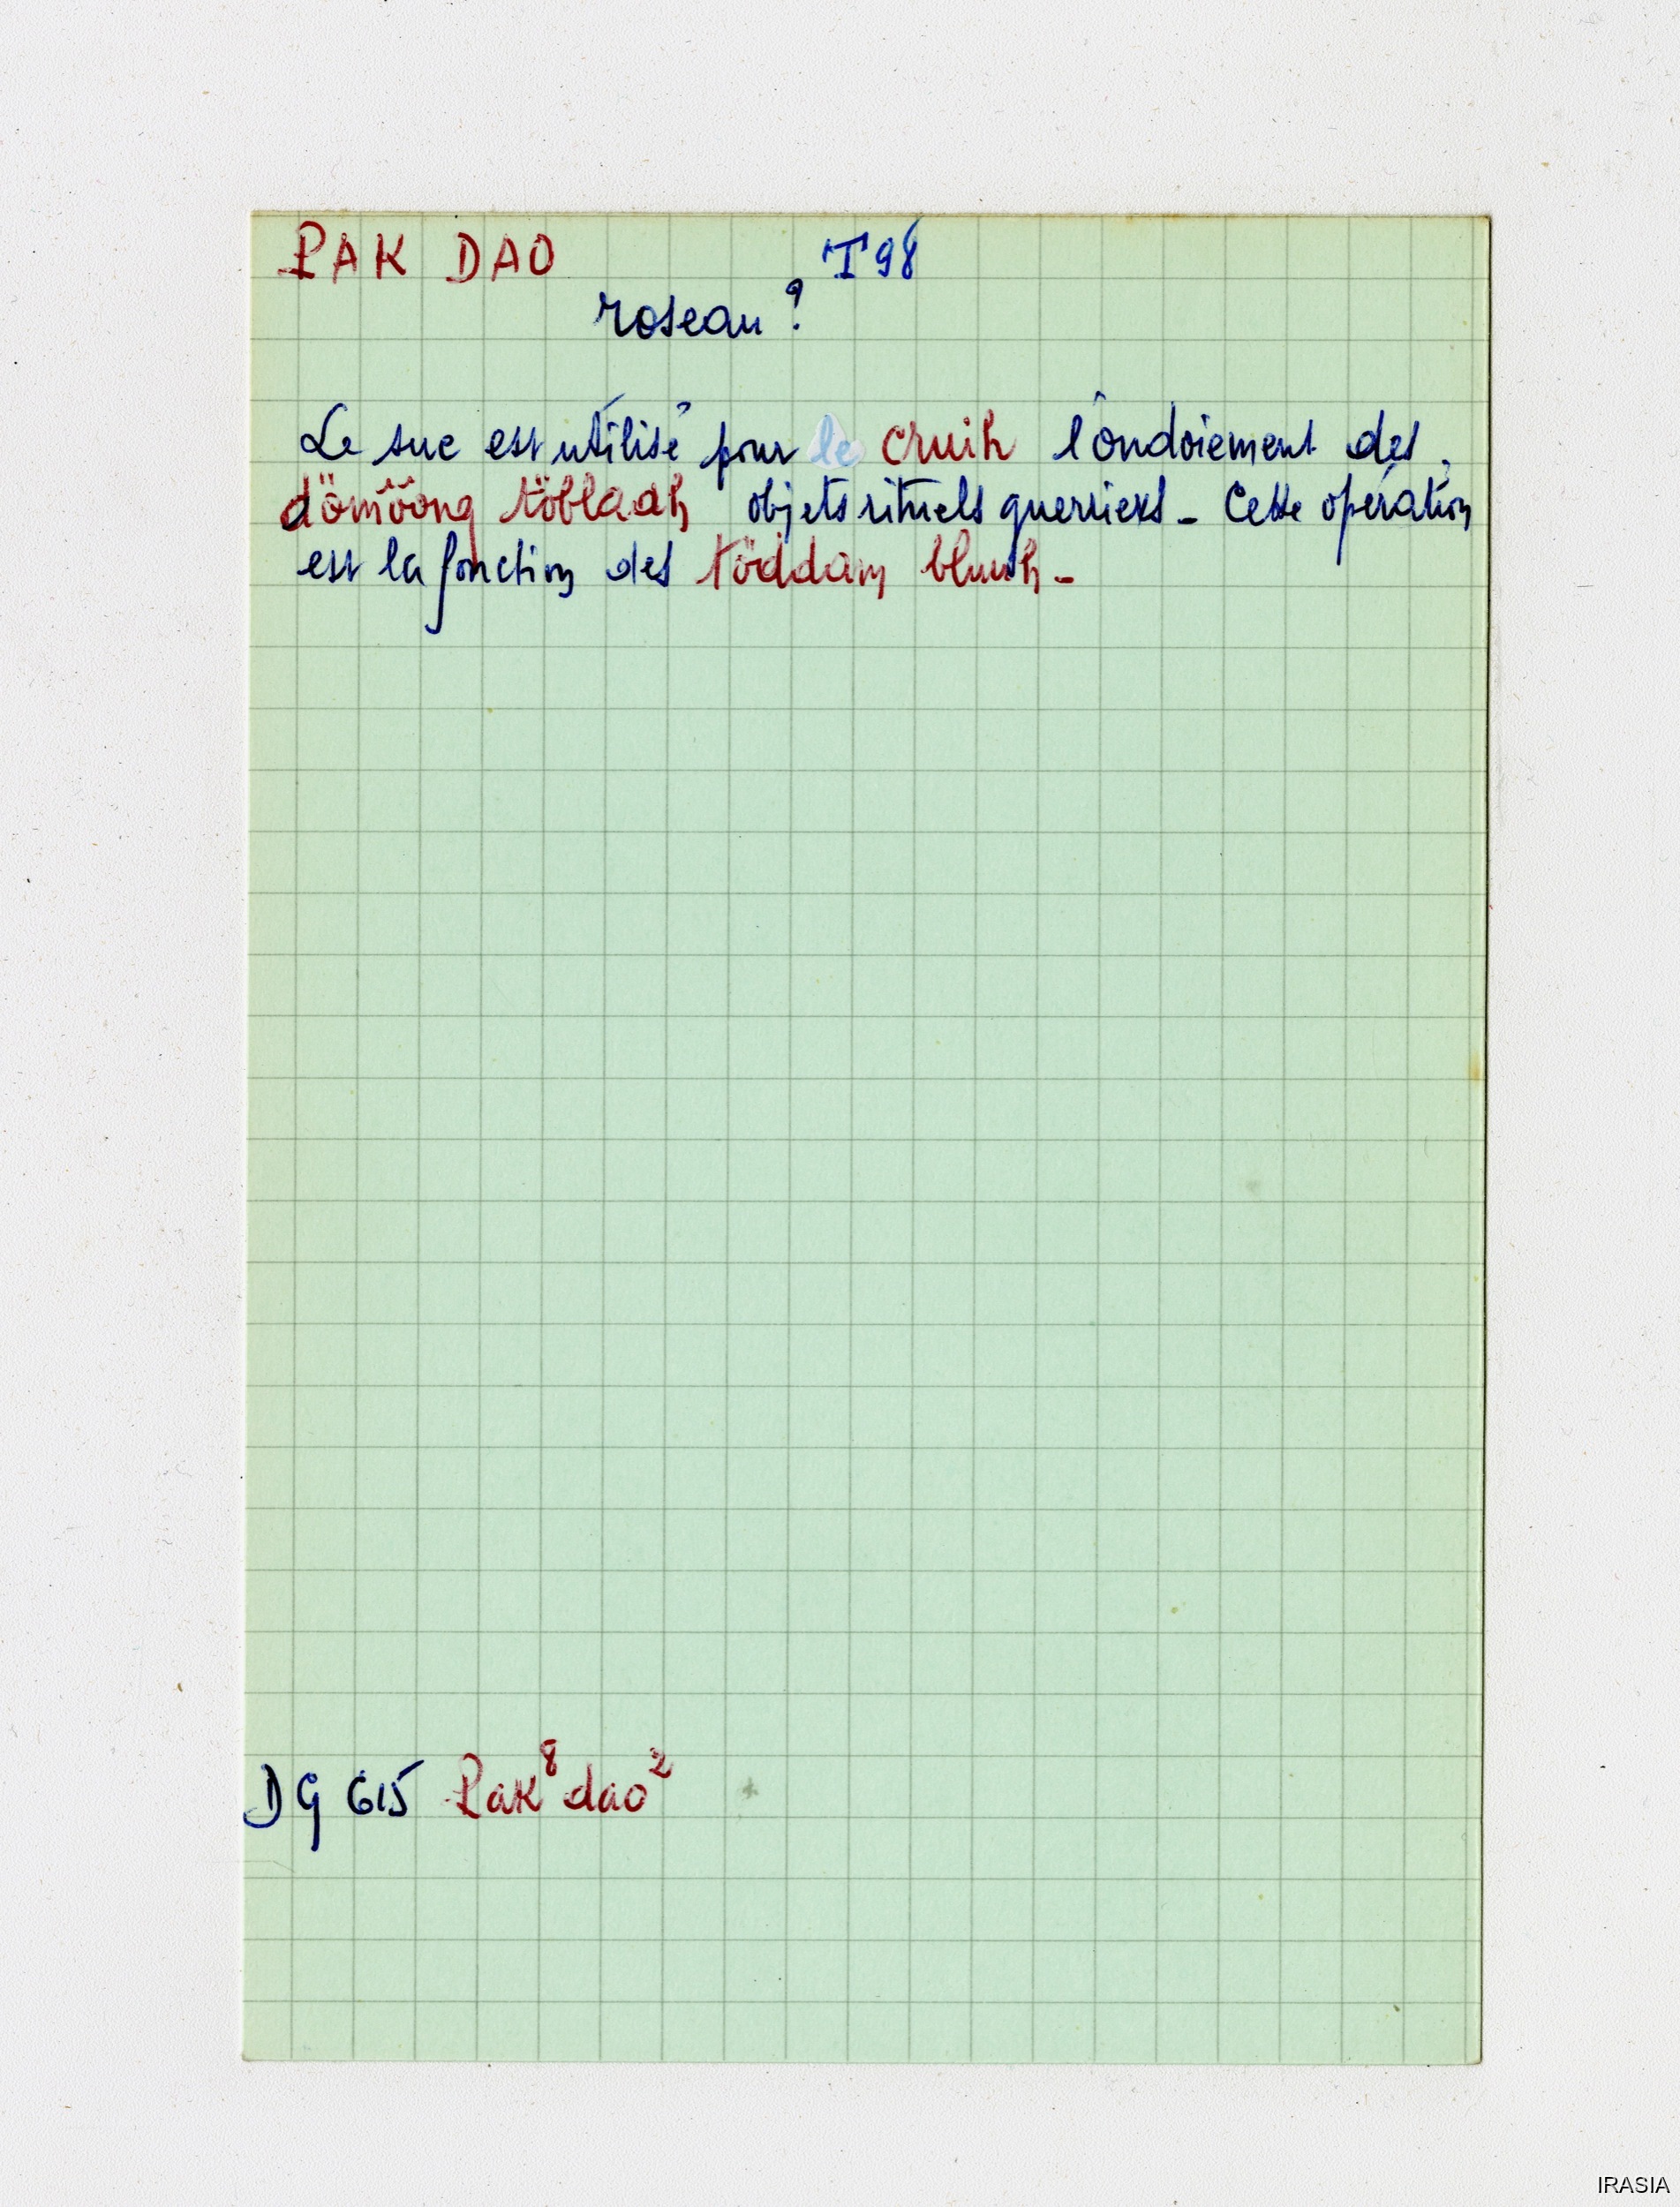 PAK DAO T98
roseau ?
Le suc est utilisé pour le cruih l'ondoiement des
dömööng töbladh objets rituels guerriers - Cette opération
est la fonction des töddam bluuh -
DG 615 Pak⁸ dao²
IRASIA